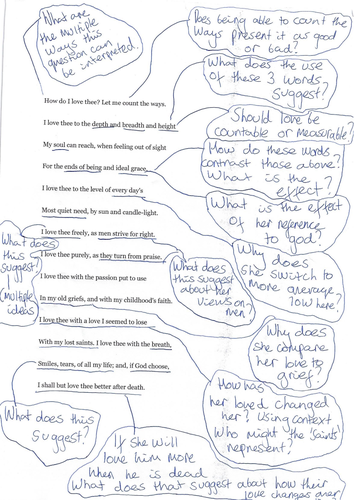 What are
the multiple
ways this
question can
be interpreted.
Does being able to count the
ways present it as good
or bad?
What does the use
of these 3 words
suggest?
How do I love thee? Let me count the ways.
I love thee to the depth and breadth and height
Should love be
countable or measurable?
My soul can reach, when feeling out of sight
How do these words
contrast those above?
What is the
effect?
For the ends of being and ideal grace.
I love thee to the level of every day's
What is the effect
of her reference
to god?
Most quiet need, by sun and candle-light.
I love thee freely, as men strive for right.
What does
this
suggest?
(multiple
ideas)
Why does
she switch to
more average
love here?
I love thee purely, as they turn from praise.
What does
this suggest
about her
views on
men?
I love thee with the passion put to use
In my old griefs, and with my childhood's faith.
I love thee with a love I seemed to lose
Why does
she compare
her love to
grief?
With my lost saints. I love thee with the breath,
Smiles, tears, of all my life; and, if God choose,
I shall but love thee better after death.
How has
her loved changed
her? Using context
who might the 'saints'
represent?
What does this
suggest?
If she will
love him more
when he is dead
What does that suggest about how their
love changes over